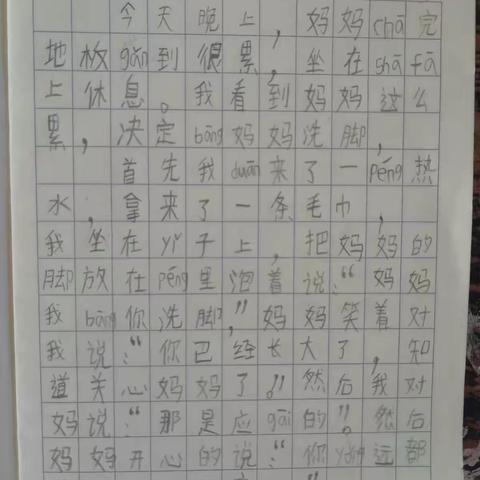 今天晚上，妈妈cā完
地板gǎn到很累，坐在shā fā
上休息。我看到妈妈这么
累，决定bāng妈妈洗脚，
首先我duān来了一péng热
水，拿来了一条毛巾，
我坐在yǐ子上，把妈妈的
脚放在péng里泡着说：“妈妈
我bāng你洗脚”，妈妈笑着对
我说：“你已经长大了，知
道关心妈妈了。”然后我对
妈说：“那是应gāi的”。然后
妈妈开心的说：“你yǒng远都